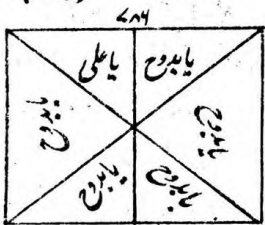 ۷۸۶
یا علی
یا بدوح
یا بدوح
یا بدوح
یا بدوح
یا بدوح